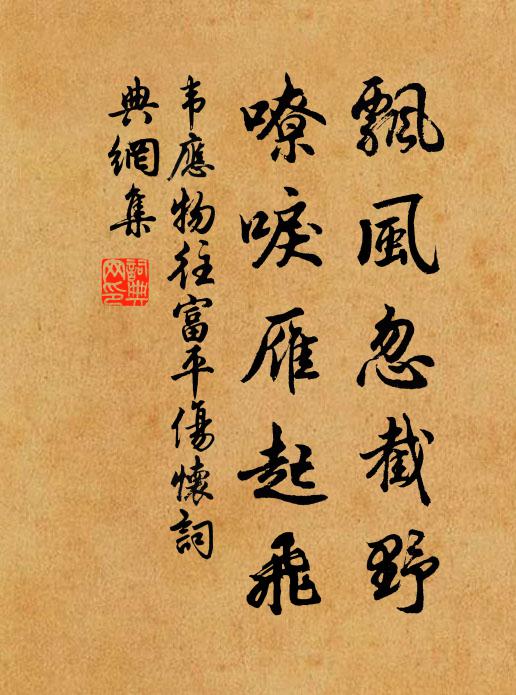 飄風忽截野
嘹唳雁起飛
韦應物往富平傷懷詞
典網集
詞典網印